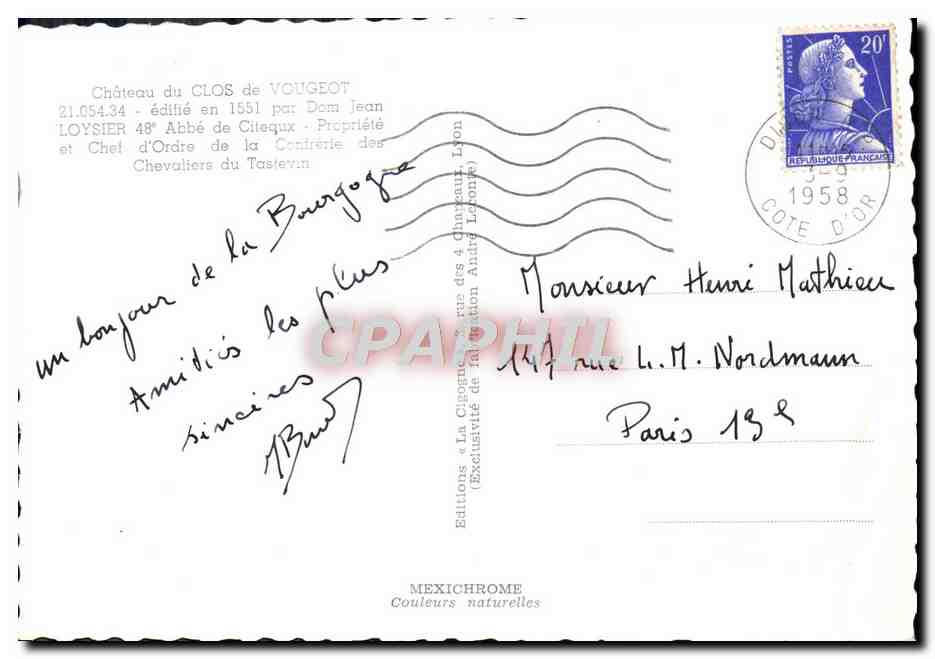 Château du CLOS de VOUGEOT
21.054.34 - édifié en 1551 par Dom Jean
LOYSIER 48e Abbé de Citeaux - Propriété
et Chef d'Ordre de la Confrérie des
Chevaliers du Tastevin
un bonjour de la Bourgogne
Amitiés les plus
sincères
Editions « La Cigogne », rue des 4 Chapeaux, Lyon
(Exclusivité de fabrication André Leconte)
POSTES
20F
REPUBLIQUE FRANÇAISE
1958
COTE D'OR
Monsieur Henri Mathieu
147 rue L.M. Nordmann
Paris 13e
CPAPHIL
MEXICHROME
Couleurs naturelles